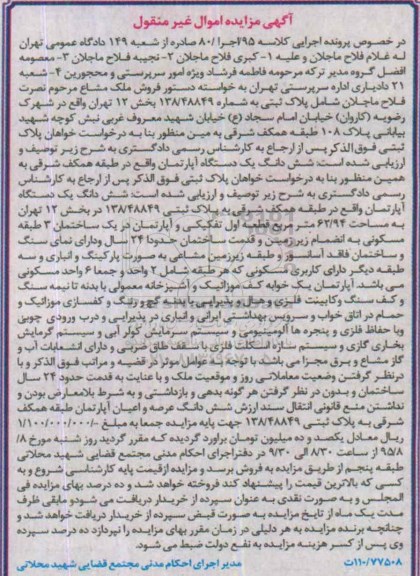 آگهی مزایده اموال غیر منقول
در خصوص پرونده اجرایی کلاسه ۲۹۵اجرا/۸۰ صادره از شعبه ۱۴۹ دادگاه عمومی تهران
له غلام فلاح ماجلان و علیه ۱- کبری فلاح ماجلان ۲- نجیبه فلاح ماجلان ۳- معصومه
افضل گروه مدیر ترکه مرحومه فاطمه فرشاد ویژه امور سرپرستی و محجورین ۴- شعبه
۲۱ دادیاری اداره سرپرستی تهران به خواسته دستور فروش ملک مشاع مرحوم نصرت
فلاح ماجلان شامل پلاک ثبتی به شماره ۱۳۸/۴۸۸۴۹ بخش ۱۲ تهران واقع در شهرک
رضویه (کاروان) خیابان امام سجاد (ع) خیابان شهید معروف غربی نبش کوچه شهید
بیابانی پلاک ۱۰۸ طبقه همکف شرقی به مین منظور بنا به درخواست خواهان پلاک
ثبتی فوق الذکر پس از ارجاع به کارشناس رسمی دادگستری به شرح زیر توصیف و
ارزیابی شده است: شش دانگ یک دستگاه آپارتمان واقع در طبقه همکف شرقی به
همین منظور بنا به درخواست خواهان پلاک ثبتی فوق الذکر پس از ارجاع به کارشناس
رسمی دادگستری به شرح زیر توصیف و ارزیابی شده است: شش دانگ یک دستگاه
آپارتمان واقع در طبقه همکف شرقی به پلاک ثبتی ۱۳۸/۴۸۸۴۹ در بخش ۱۲ تهران
به مساحت ۶۲/۹۴ متر مربع قطعه اول تفکیکی و آپارتمان در یک ساختمان ۳ طبقه
مسکونی به انضمام زیرزمین و قدمت ساختمان حدودا ۲۴ سال ودارای نمای سنگ
و ساختمان فاقد آسانسور و طبقه زیرزمین مشاعی به صورت پارکینگ و انباری و سه
طبقه دیگر دارای کاربری مسکونی که هر طبقه شامل ۲ واحد و جمعا ۶ واحد مسکونی
می باشد. آپارتمان یک خوابه کف موزائیک و آشپزخانه معمولی با بدنه تا نیمه سنگ
و کف سنگ وکابینت فلزی و هال و پذیرایی با بدنه گچ و رنگ و کفسازی موزائیک و
حمام در اتاق خواب و سرویس بهداشتی ایرانی و انباری در پذیرایی و درب ورودی چوبی
وبا حفاظ فلزی و پنجره ها آلومینیومی و سیستم سرمایش کولر آبی و سیستم گرمایش
بخاری گازی و سیستم سازه اسکلت فلزی با سقف طاق ضربی و دارای انشعابات آب و
گاز مشاع و برق مجزا می باشد با توجه که عوامل موثر در قضیه و مراتب فوق الذکر و با
درنظر گرفتن وضعیت معاملاتی روز و موقعیت ملک و با عنایت به قدمت حدود ۲۴ سال
ساختمان و بدون در نظر گرفتن هر گونه بدهی و بازداشتی و به شرط بلامعارض بودن و
نداشتن منع قانونی انتقال سند ارزش شش دانگ عرصه و اعیان آپارتمان طبقه همکف
شرقی به پلاک ثبتی ۱۳۸/۴۸۸۴۹ جهت پایه مزایده جمعا به مبلغ -/۱/۱۰۰/۰۰۰/۰۰۰
ریال معادل یکصد و ده میلیون تومان براورد گردیده که مقرر گردید روز شنبه مورخ ۸/
۹۵/۸ از ساعت ۸/۳۰ الی ۹/۳۰ در دفتراجرای احکام مدنی مجتمع قضایی شهید محلاتی
طبقه پنجم از طریق مزایده به فروش برسد و مزایده ازقیمت پایه کارشناسی شروع و به
کسی که بالاترین قیمت را پیشنهاد کند فروخته خواهد شد و ده درصد بهای مزایده فی
المجلس و به صورت نقدی به عنوان سپرده از خریدار دریافت می شودو مابقی ظرف
مدت یک ماه از تاریخ مزایده به صورت قبض سپرده از خریدار دریافت خواهد شد و
چنانچه برنده مزایده به هر دلیلی در زمان مقرر بهای مزایده را نپردازد ده درصد سپرده
وی پس از کسر هزینه مزایده به نفع دولت ضبط می شود.
۱۱۰/۷۷۵۰۸ت مدیر اجرای احکام مدنی مجتمع قضایی شهید محلاتی